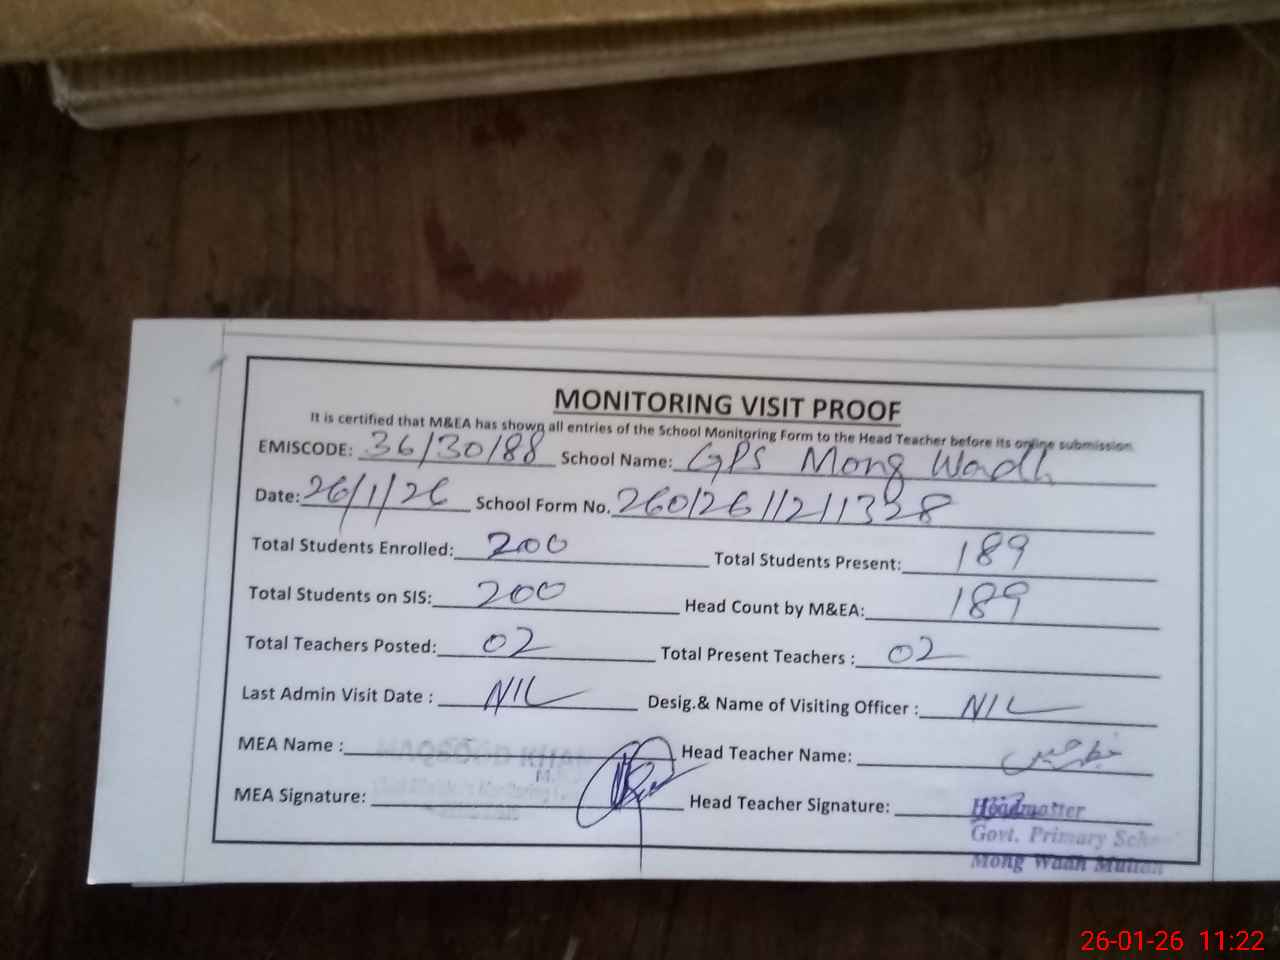 MONITORING VISIT PROOF
It is certified that M&EA has shown all entries of the School Monitoring Form to the Head Teacher before its online submission.
EMISCODE: 36130188 School Name: GPS Mong Wadh
Date: 26/1/26 School Form No. 26012611211328
Total Students Enrolled: 200 Total Students Present: 189
Total Students on SIS: 200 Head Count by M&EA: 189
Total Teachers Posted: 02 Total Present Teachers : 02
Last Admin Visit Date : NIL Desig.& Name of Visiting Officer : NIL
MEA Name : Head Teacher Name:
MEA Signature: Head Teacher Signature:
Headmaster
Govt. Primary
Mong Waah Multan
26-01-26 11:22